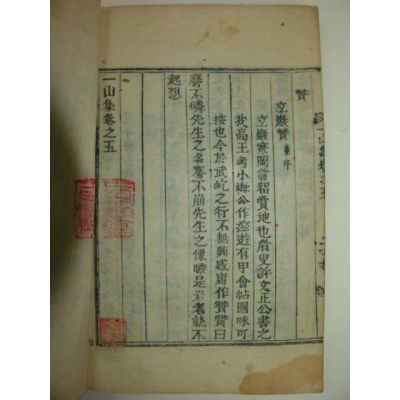 贊
立巖贊 並序
立巖寒岡翁留賞地也眉叟許文正公書之
我高王考小梅公作遊有甲會帖圖咏可
按也今於武屹之行不無興感庸作贊贊曰
磨不磷先生之名騫不崩先生之像瞻是岩者孰不
起想
一山集卷之五